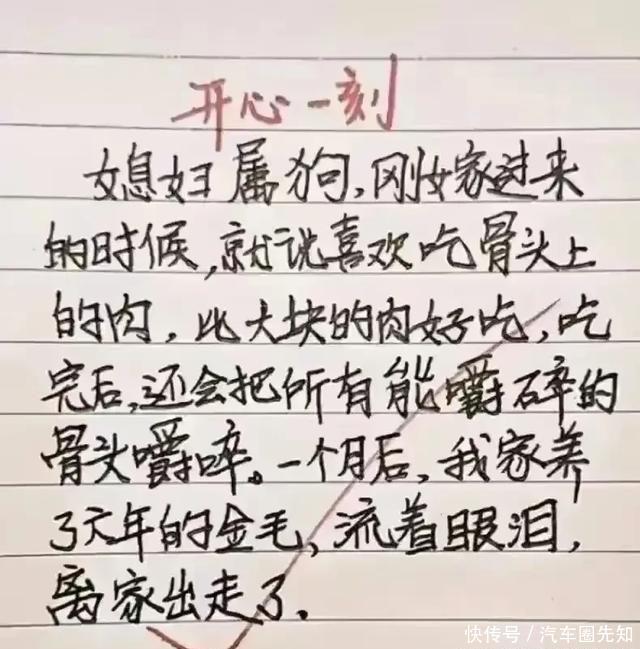 开心一刻
媳妇属狗,刚嫁过来
的时候,就说喜欢吃骨头上
的肉,比大块的肉好吃,吃
完后,还会把所有能嚼碎的
骨头嚼碎。一个月后,我家养
了六年的金毛,流着眼泪,
离家出走了.
快传号/汽车圈先知